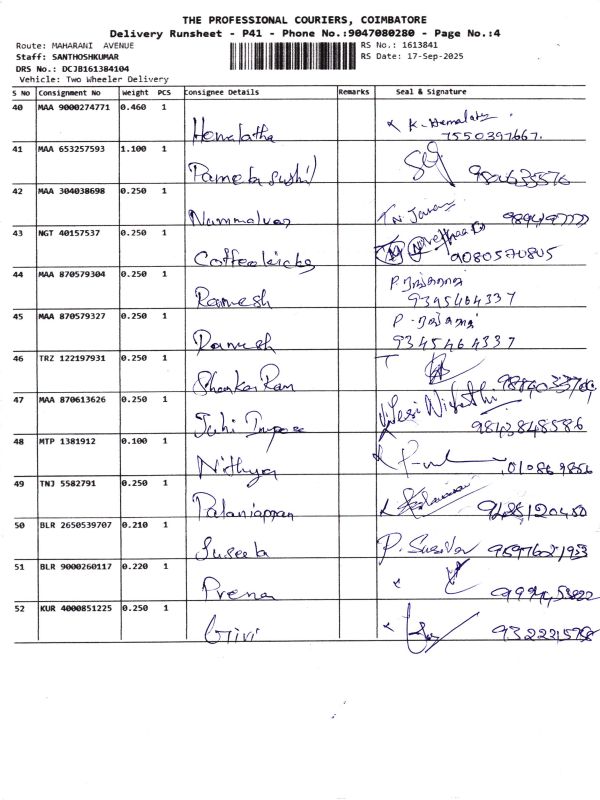 THE PROFESSIONAL COURIERS, COIMBATORE
Delivery Runsheet - P41 - Phone No.:9047080280 - Page No.:4
Route: MAHARANI AVENUE RS No.: 1613841
Staff: SANTHOSHKUMAR RS Date: 17-Sep-2025
DRS No.: DCJB161384104
Vehicle: Two Wheeler Delivery
S No Consignment No Weight PCS Consignee Details Remarks Seal & Signature
40 MAA 9000274771 0.460 1
Hemalatha K. Hemalatha
7550397667.
41 MAA 653257593 1.100 1
Pamela Sushil
42 MAA 304038698 0.250 1
Nammalvar
43 NGT 40157537 0.250 1
9080570805
44 MAA 870579304 0.250 1
Ramesh
9345464337
45 MAA 870579327 0.250 1
Ramesh
9345464337
46 TRZ 122197931 0.250 1
Shankar Ram
47 MAA 870613626 0.250 1
9843848586
48 MTP 1381912 0.100 1
Nithya
49 TNJ 5582791 0.250 1
Palaniappan
50 BLR 2650539707 0.210 1
Suseela
51 BLR 9000260117 0.220 1
Prema
52 KUR 4000851225 0.250 1
Giri